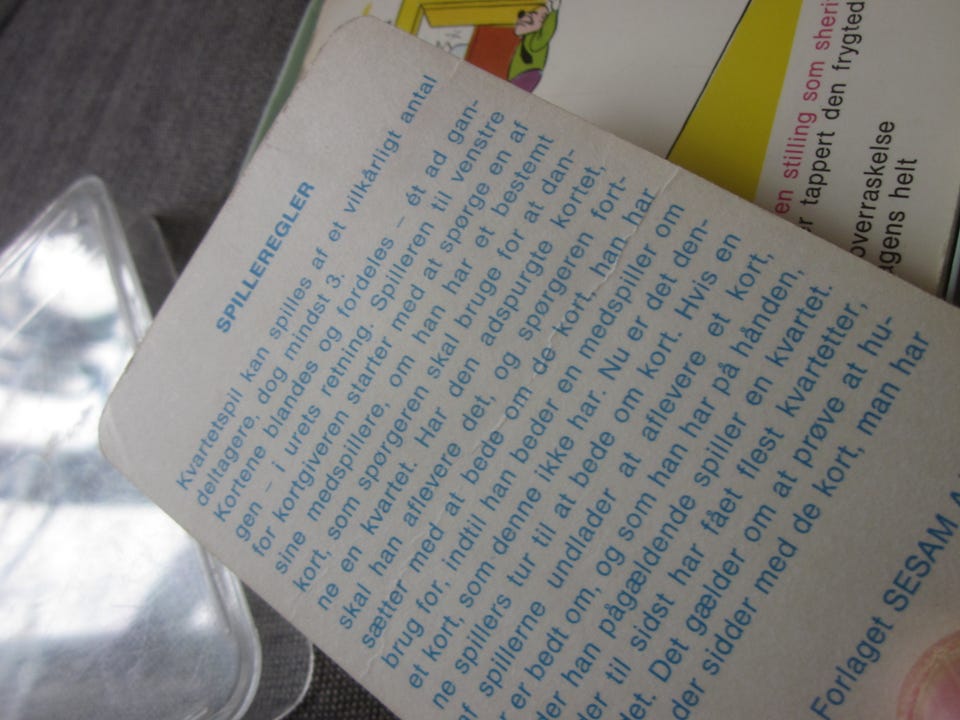 SPILLEREGLER
Kvartetspil kan spilles af et vilkårligt antal
deltagere, dog mindst 3.
Kortene blandes og fordeles – ét ad gan-
gen – i urets retning. Spilleren til venstre
for kortgiveren starter med at spørge en af
sine medspillere, om han har et bestemt
kort, som spørgeren skal bruge for at dan-
ne en kvartet. Har den adspurgte kortet,
skal han aflevere det, og spørgeren fort-
sætter med at bede om de kort, han har
brug for, indtil han beder en medspiller om
et kort, som denne ikke har. Nu er det den-
ne spillers tur til at bede om kort. Hvis en
af spillerne undlader at aflevere et kort,
er bedt om, og som han har på hånden,
der han pågældende spiller en kvartet.
der til sidst har fået flest kvartetter,
det. Det gælder om at prøve at hu-
der sidder med de kort, man har
Forlaget SESAM
en stilling som sheri
er tappert den frygted
overraskelse
agens helt